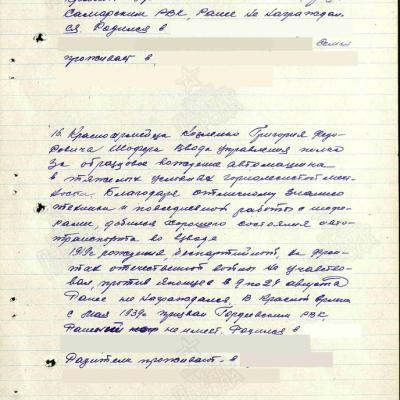 Самарским РВК, Ранее не награждал
ся. Родился в
Семья
проживает в
16. Красноармейца Козленко Григория Федо-
ровича Шофера взвода управления полка
За образцовое вождение автомашины
в тяжелых условиях горнолесистой мест-
ности. Благодаря отличному знанию
техники и повседневной работы с шофе-
рами, добился хорошего состояния авто-
транспорта во взводе
рождения, беспартийный, на фрон-
тах отечественной войны не участво-
вал, против японцев с 9 по 29 августа
Ранее не награждался. В Красной Армии
с Мая 1939г призван Гордеевским РВК.
Ранений не имеет. Родился в
Родители проживают в